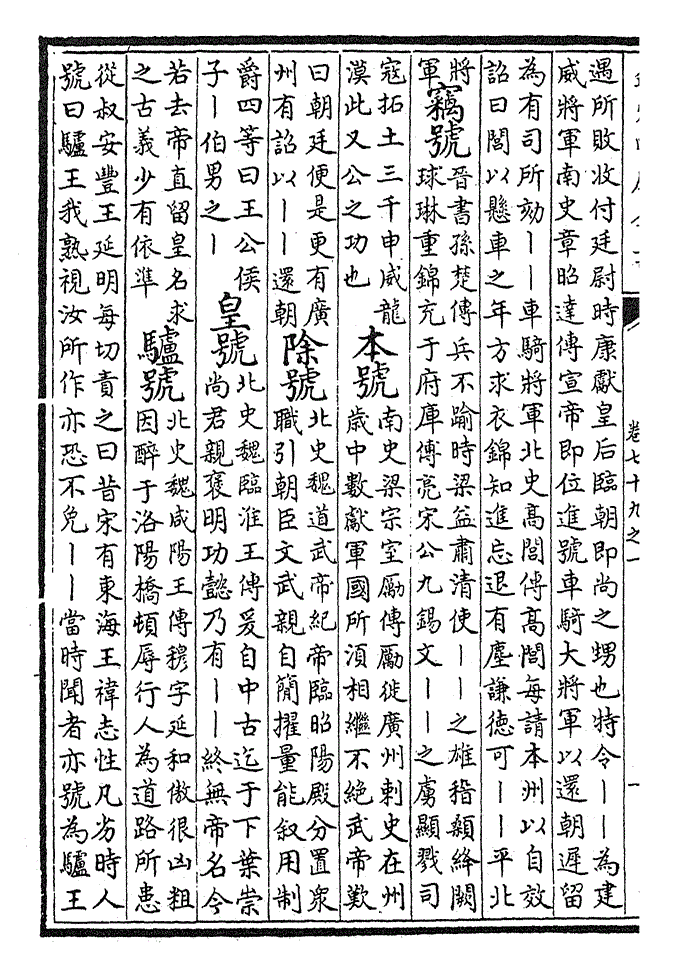 卷七十九之一
遇所敗收付廷尉時康獻皇后臨朝即尚之甥也特令丨丨為建
威將軍南史章昭達傳宣帝即位進號車騎大將軍以還朝遲留
為有司所劾丨丨車騎將軍北史高閭傳高閭每請本州以自效
詔曰閭以懸車之年方求衣錦知進忘退有塵謙德可丨丨平北
將
軍
竊號
晉書孫楚傳兵不踰時梁益肅清使丨丨之雄稽顙絳闕
球琳重錦充于府庫傅亮宋公九錫文丨丨之虜顯戮司
寇拓土三千申威龍
漠此又公之功也
本號
南史梁宗室勵傳勵徙廣州刺史在州
歲中數獻軍國所須相繼不絕武帝歎
曰朝廷便是更有廣
州有詔以丨丨還朝
除號
北史魏道武帝紀帝臨昭陽殿分置衆
職引朝臣文武親自簡擢量能叙用制
爵四等曰王公侯
子丨伯男之丨
皇號
北史魏臨淮王傳爰自中古迄于下葉崇
尚君親褒明功懿乃有丨丨終無帝名今
若去帝直留皇名求
之古義少有依準
驢號
北史魏咸陽王傳穆字延和傲很凶粗
因醉于洛陽橋頓辱行人為道路所患
從叔安豐王延明每切責之曰昔宋有東海王褘志性凡劣時人
號曰驢王我熟視汝所作亦恐不免丨丨當時聞者亦號為驢王